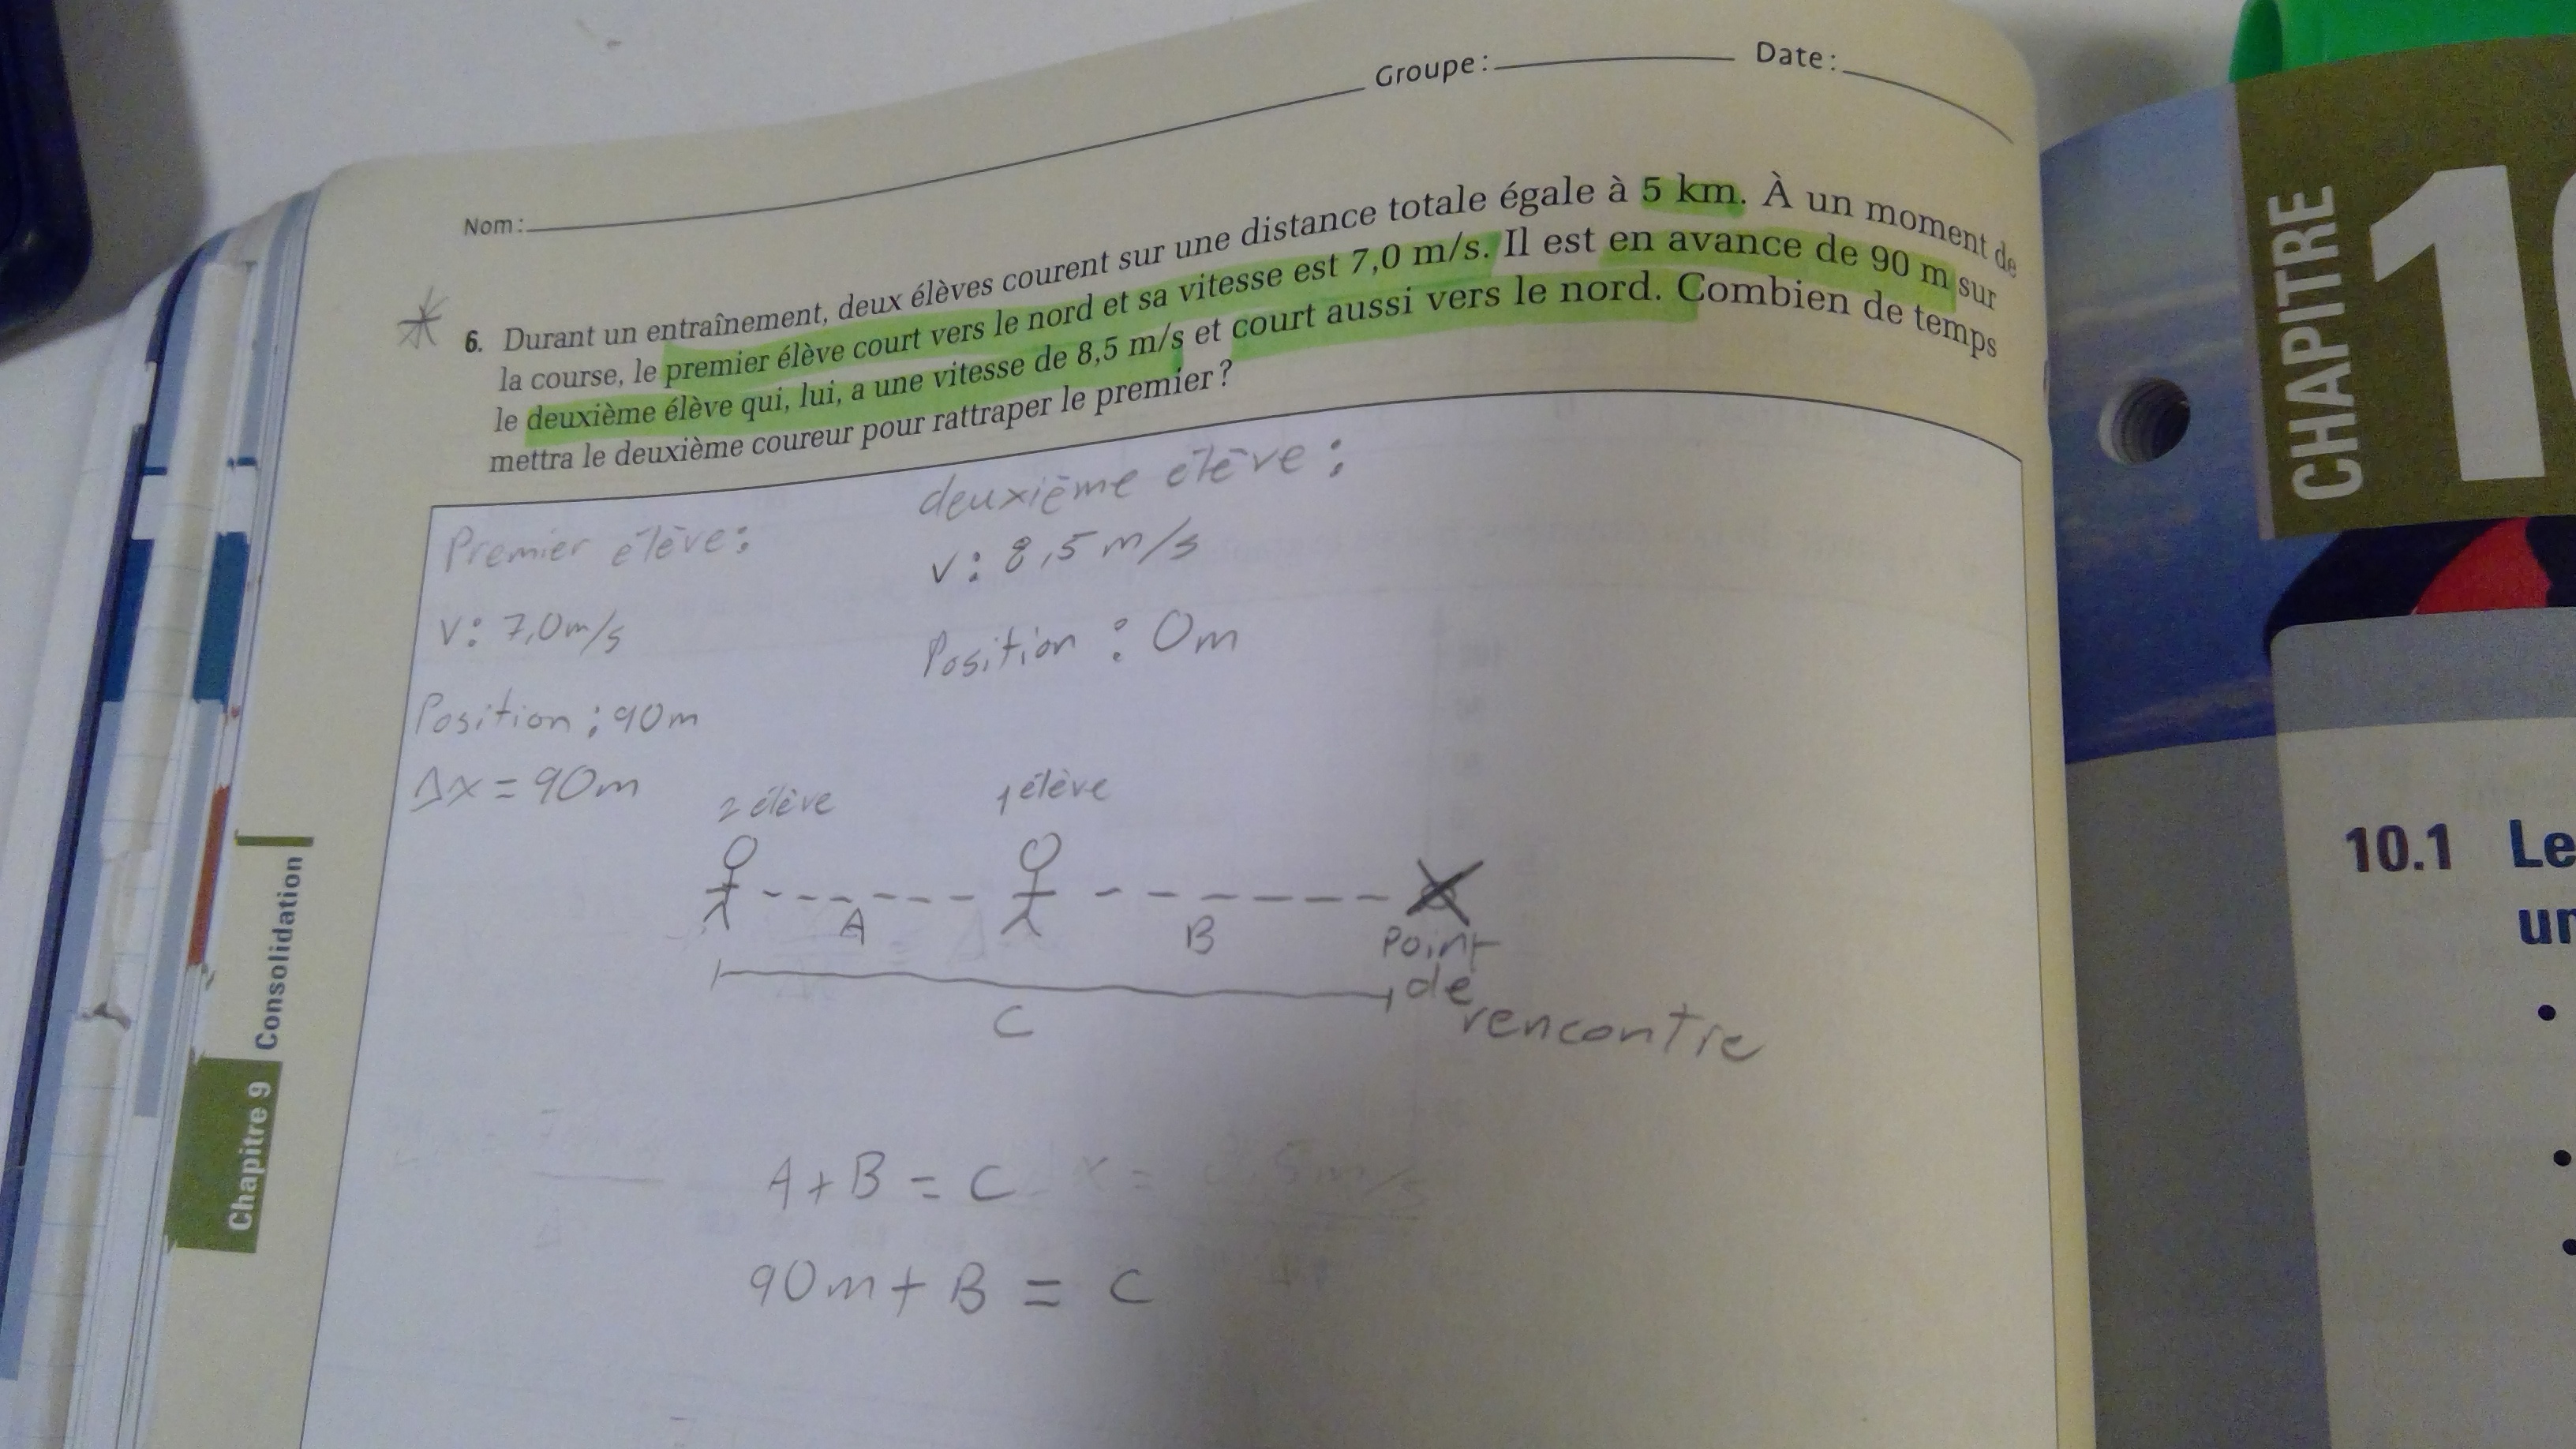 Nom: Groupe: Date:
6. Durant un entraînement, deux élèves courent sur une distance totale égale à 5 km. À un moment de
la course, le premier élève court vers le nord et sa vitesse est 7,0 m/s. Il est en avance de 90 m sur
le deuxième élève qui, lui, a une vitesse de 8,5 m/s et court aussi vers le nord. Combien de temps
mettra le deuxième coureur pour rattraper le premier ?
Premier élève:
v: 7,0m/s
Position : 90m
Δx = 90m
deuxième élève :
v: 8,5 m/s
Position : 0m
2 élève 1 élève
A B
Point
de
rencontre
C
A + B = C
90m + B = C
Chapitre 9 Consolidation
CHAPITRE
10.1 Le